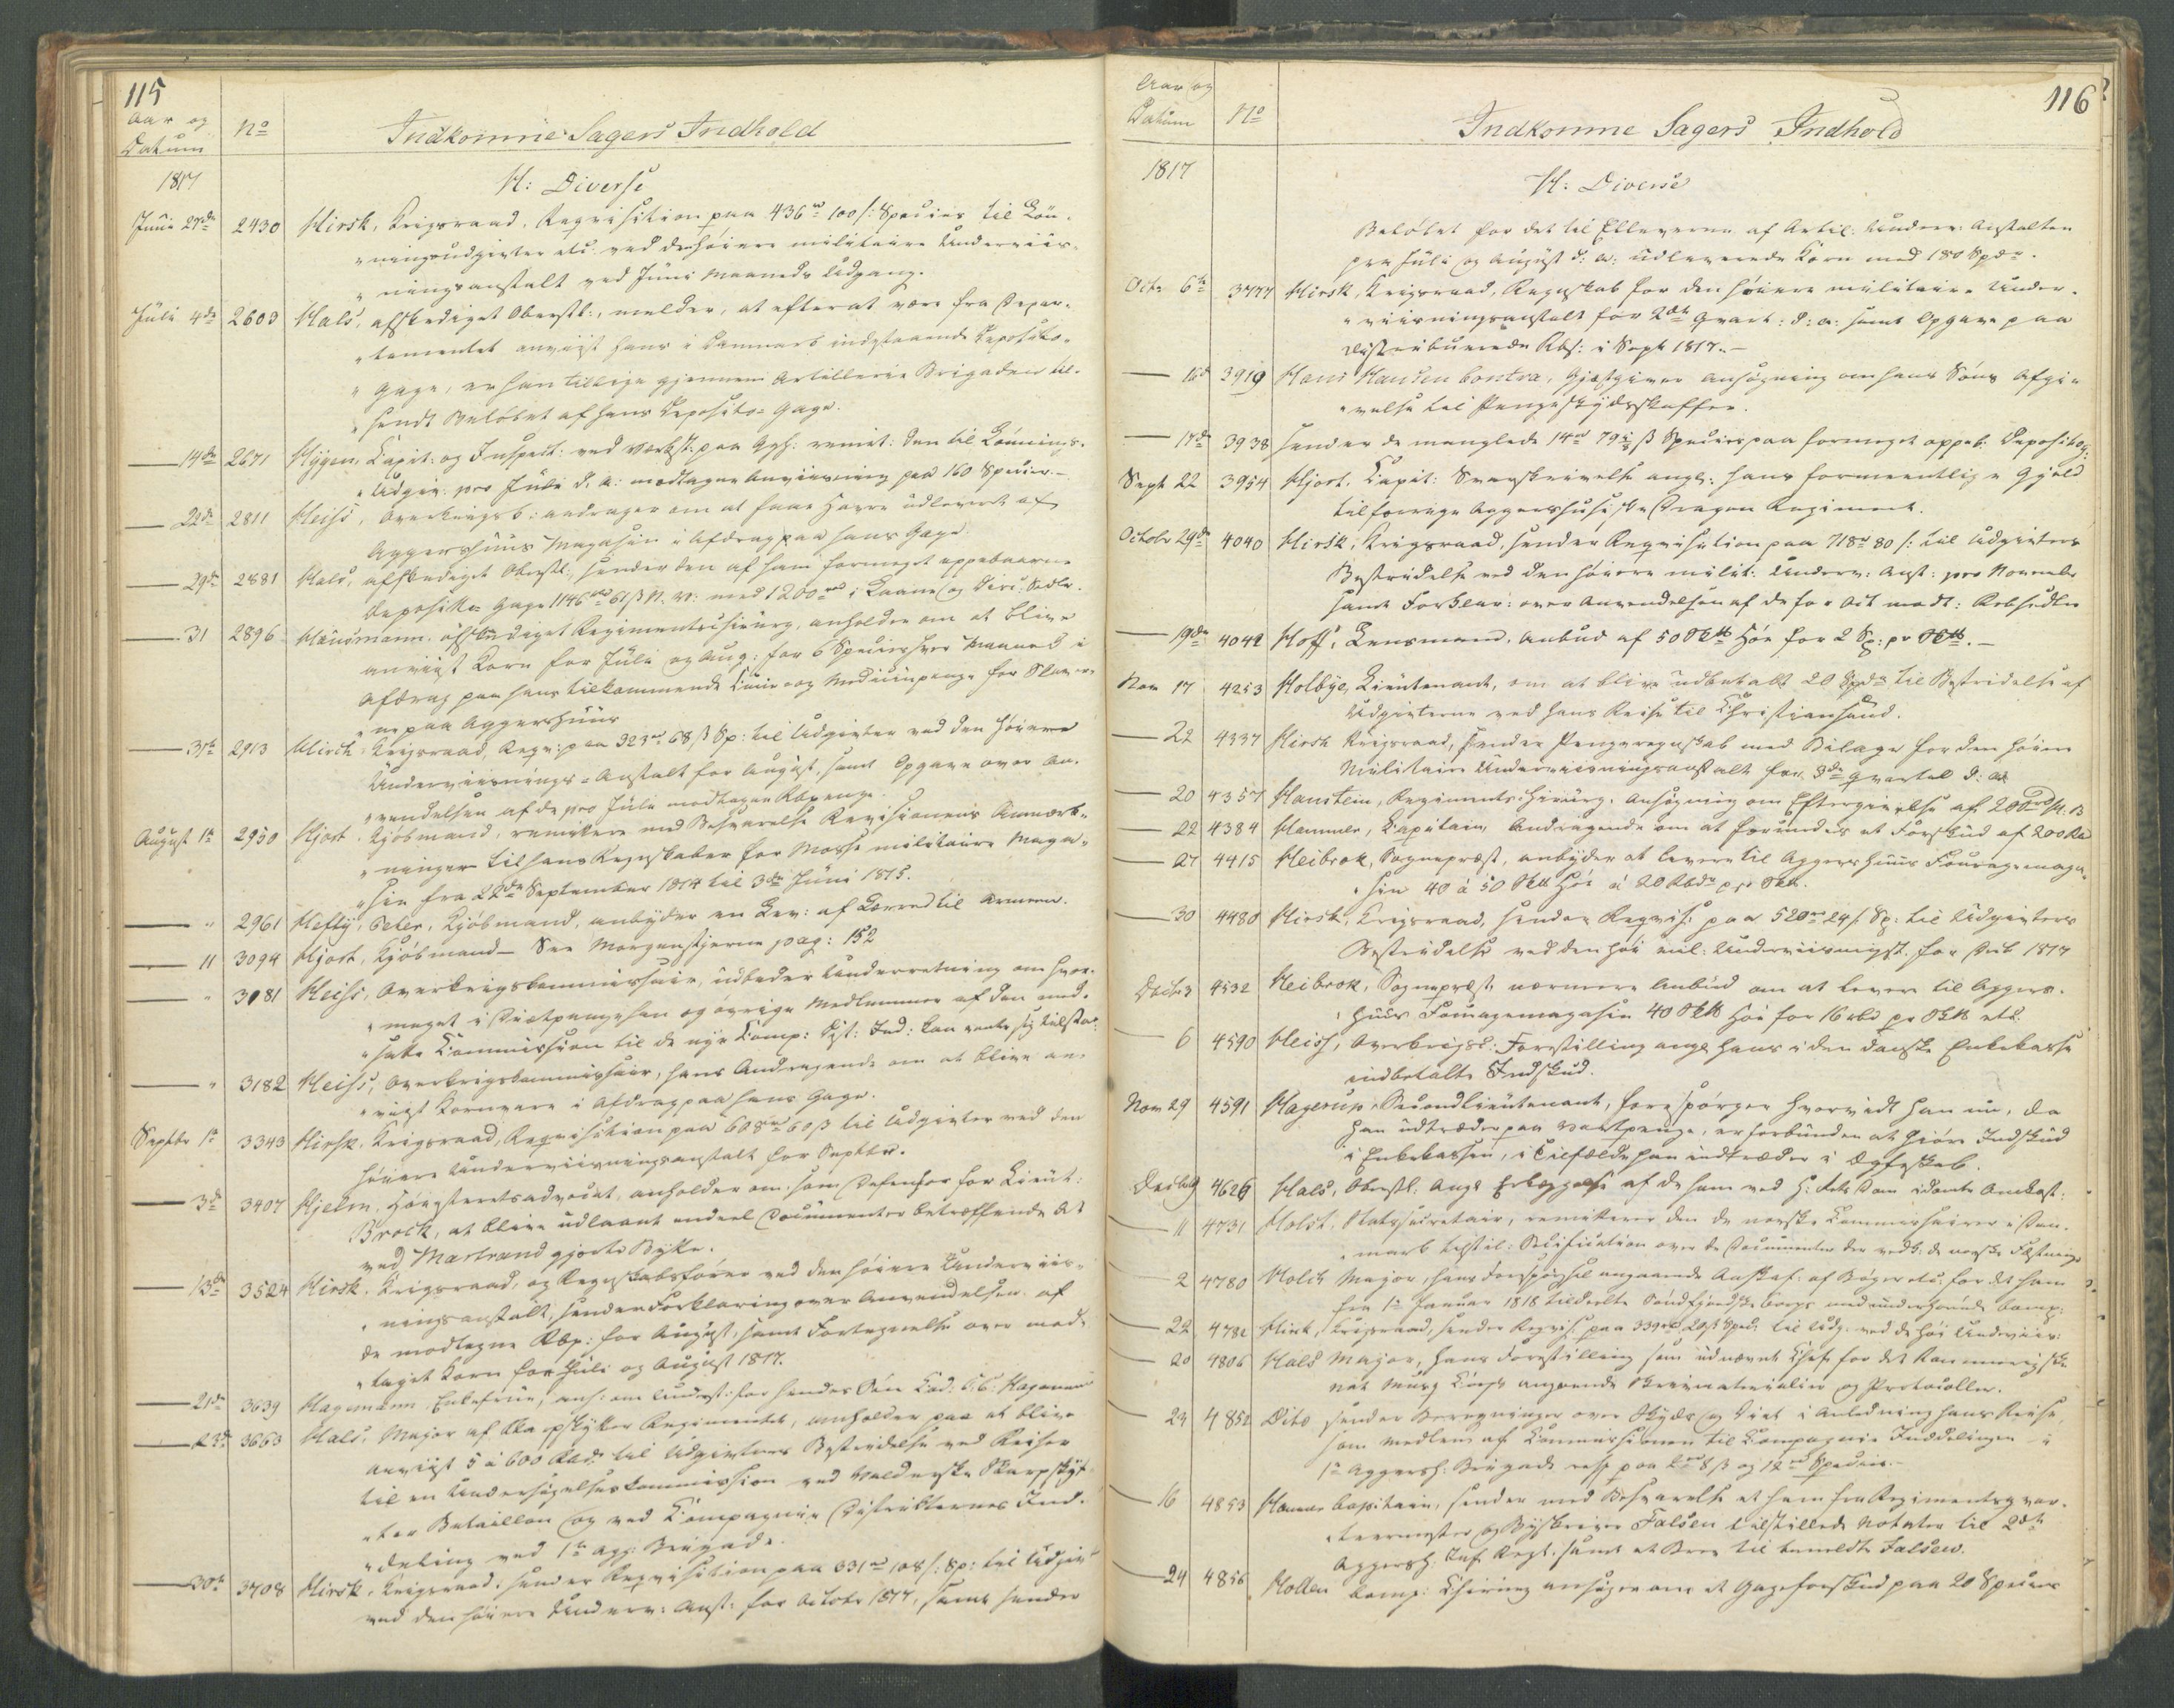 115
Aar og
Datum
No
Indkomne Sagers Indhold
1817
H: Diverse
Juni 27de 2430 Hirsk, Krigsraad, Reqvisition paa 436rd 100 s: Species til Løn-
"ningsudgivter etc. ved den høiere militaire Underviis-
"ningsanstalt ved Juni Maaneds Udgang.
Juli 4de 2603 Hals, afskediget Oberstl:, melder, at efterat være fra Depar-
"tementet anviist hans i Danmark indestaaende Deposito-
"Gage, er han tillige gjennem Artillerie Brigaden til-
"sendt Beløbet af hans Deposito-Gage.
— 14de 2671 Hygen, Capit: og Inspect: ved Værkst: paa Agh: remit: den til Lønnings-
"Udgiv: pro Juli d. a: modtagne Anviisning paa 160 Species.—
— 22de 2811 Heiss, Overkrigsk: andrager om at faae Havre udleveret af
Aggershuus Magasin i Afdrag paa hans Gage.
— 29de 2881 Hals, afskediget Oberstl:, sender den af ham formeget oppebaarne
Deposito Gage 1146rd 61 ß N. V: med 1200rd i Laane og Divi: Sedler.
— 31 2896 Hausmann, afskediget Regimentschirurg, anholder om at blive
anviist Korn for Juli og Aug: for 6 Species hver Maaned i
Afdrag paa hans tilkommende Cuur og Medicinpenge for Slaver-
"ne paa Aggershuus
— 31te 2913 Hirsk Krigsraad, Reqv: paa 323rd 68 ß Sp: til Udgivter ved den høiere
Underviisnings-Anstalt for August, samt Opgave over An-
"vendelsen af de pro Juli modtagne Rbpenge.
August 1te 2950 Hjort, Kjøbmand, remitere med Besvarelse Revisionens Anmærk-
"ninger til hans Regnskaber for Mosse militaire Maga-
"sin fra 22de September 1814 til 3die Juni 1815.
— " 2961 Hefty, Peter, Kjøbmand, anbyder en Lev: af Lærred til Armeen.
— 11 3094 Hjort, Kjøbmand— See Morgenstjerne pag: 152
— " 3081 Heiss, Overkrigskommissair, udbeder Underretning om hvor-
"meget i Diætpenge han og øvrige Medlemmer af den ned-
"satte Kommission til de nye Comp: Dist: Ind: kan vente sig tilstaaet
— " 3182 Heiss, Overkrigskommissair, hans Andragende om at blive an-
"viist Kornvare i Afdrag paa hans Gage.
Septbr 1te 3343 Hirsk, Krigsraad, Reqvisition paa 608rd 60 ß til Udgivter ved den
høiere Underviisningsanstalt for Septbr.
— 3de 3407 Hjelm, Høiesteretsadvocat, anholder om, som Defensor for Lieut:
Brock, at blive udlaant endeel Documenter betræffende det
ved Marstrand gjorte Bytte.
— 13de 3524 Hirsk, Krigsraad, og Regnskabsfører ved den høiere Underviis-
"ningsanstalt, sender Forklaring over Anvendelsen af
de modtagne Rbp: for August, samt Fortegnelse over mod-
"taget Korn for Juli og August 1817.
— 21de 3639 Hagemann, Enkefrue, ans: om Underst: for hendes Søn Cad: C. C. Hagemann
— 23de 3663 Hals, Major af Skarpskytter Regimentet, anholder paa at blive
anviist 5 à 600 Rbdr til Udgivternes Bestridelse ved Reiser
til en Undersøgelseskommission ved Valderske Skarpskyt-
"ter Bataillon og ved Compagnie Distrikternes Ind-
"deling ved 1te Agg: Brigade.
— 30te 3708 Hirsk, Krigsraad, sender Reqvisition paa 331rd 108 s: Sp: til Udgivt
ved den høiere Underv: Anst: for Octobr 1817, samt sender
Aar og
Datum
No
116
Indkomne Sagers Indhold
1817
H: Diverse
Beløbet for det til Eleverne af Artil: Underv: Anstalten
pro Juli og August d: a: udleverede Korn med 180 Spdr.
Octr 6te 3777 Hirsk, Krigsraad, Regnskab for den høiere militaire Under-
"viisningsanstalt for 2det Qvart: d: a: samt Opgave paa
distribuerede Rbs: i Sept 1817.—
— 16de 3919 Hans Hansen Contra, Gjæstgiver Ansøgning om hans Søns Afgi-
"velse til Pengeskydsskaffer.
— 17de 3938 sender de manglede 14rd 79 ß Species paa formeget oppeb: Depositog:
Sept 22 3954 Hjort, Capit: Svarskrivelse angl: hans formeentlige Gjeld
til forrige Aggershusiske Dragon Regiment.
Octobr 29de 4040 Hirsk, Krigsraad, sender Reqvisition paa 718rd 80 s: til Udgivters
Bestridelse ved den høiere milit: Underv: Anst: pro November
samt Forklar: over Anvendelsen af de for Oct modt: Rebsedler
— 19de 4042 Hoff, Lensmand, Anbud af 50 Sk℔ Høe for 2 Sp: pr Sk℔.—
Nov 17 4253 Holbye, Lieutenant, om at blive udbetalt 20 Spdr til Bestridelse af
Udgivterne ved hans Reise til Christiansund.
— 22 4337 Hirsk Krigsraad, sender Pengeregnskab med Bilage for den høiere
Militaire Underviisningsanstalt for 3die Qvartal d: a:
— 20 4357 Hanstein, Regiments Chirurg, Ansøgning om Eftergivelse af
— 22 4384 Hammer, Capitain, Andragende om at forundes et Forskud af 200 Rd
— 27 4415 Heibrok, Sognepræst, anbyder at levere til Aggershuus Fouragemaga-
"sin 40 à 50 Sk℔ Høe à 20 Rbdr pr Sk℔.
— 30 4480 Hirsk, Krigsraad, sender Reqvis: paa 520rd 24 s. Sp: til Udgivters
Bestridelse ved den høi mil: Underviisningst. for Decb 1817
Decbr 3 4532 Heibrok, Sognepræst, nærmere Anbud om at levere til Aggers-
"huus Fouragemagasin 40 Sk℔ Høe for 16 rbd pr Sk℔ etc.
— 6 4590 Heiss, Overkrigsk: Forestilling angl hans i den danske Enkekasse
indbetalte Indskud.
Nov 29 4591 Hagerup, Secondlieutenant, forespørger hvorvidt han nu, da
han udtræder paa Vartpenge, er forbunden at giøre Indskud
i Enkekassen, i Tilfælde han indtræder i Egteskab.
Decbr 9 4626 Hals, Oberstl: angl Erlæggelse af de ham ved H: Rets Dom idømte Omkost:
— 11 4731 Holst, Statssecretair, remiterer den de norske Commissairer i Dan-
"mark tilstil: Specification over de Documenter der vedk: de norske Fæstninger
— 2 4780 Holck Major, hans Forespørgsel angaaende Anskaf: af Bøger etc. for det ham
fra 1te Januar 1818 tildeelte Søndfjordske Corps med underhørende Comp:
— 22 4782 Hirsk, Krigsraad, sender Reqvis: paa 339rd 20 ß Sped: til Udg. ved de høi Underviis:
— 20 4806 Hals Major, hans Forestilling som udnævnt Chef for det Romerigske
nat Musq Corps angaaende Skrivmaterialier og Protocoller.
— 23 4852 Dito sender Beregninger over Skyds og Diet i Anledning hans Reise,
som Medlem af Commissionen til Compagnie Inddelingen i
1te Aggersh: Brigade resp paa 2rd 8 ß og 12rd Species.—
— 16 4853 Hammer Capitain, sender med Besvarelse et ham fra Regimentsqvar-
"teermester og Byskriver Falsen tilstillede Notater til 2det
Aggersh. Inf. Regt. samt et Brev til bemeldte Falsen.
— 24 4856 Holten Comp: Chirurg ansøger om et Gageforskud paa 20 Species